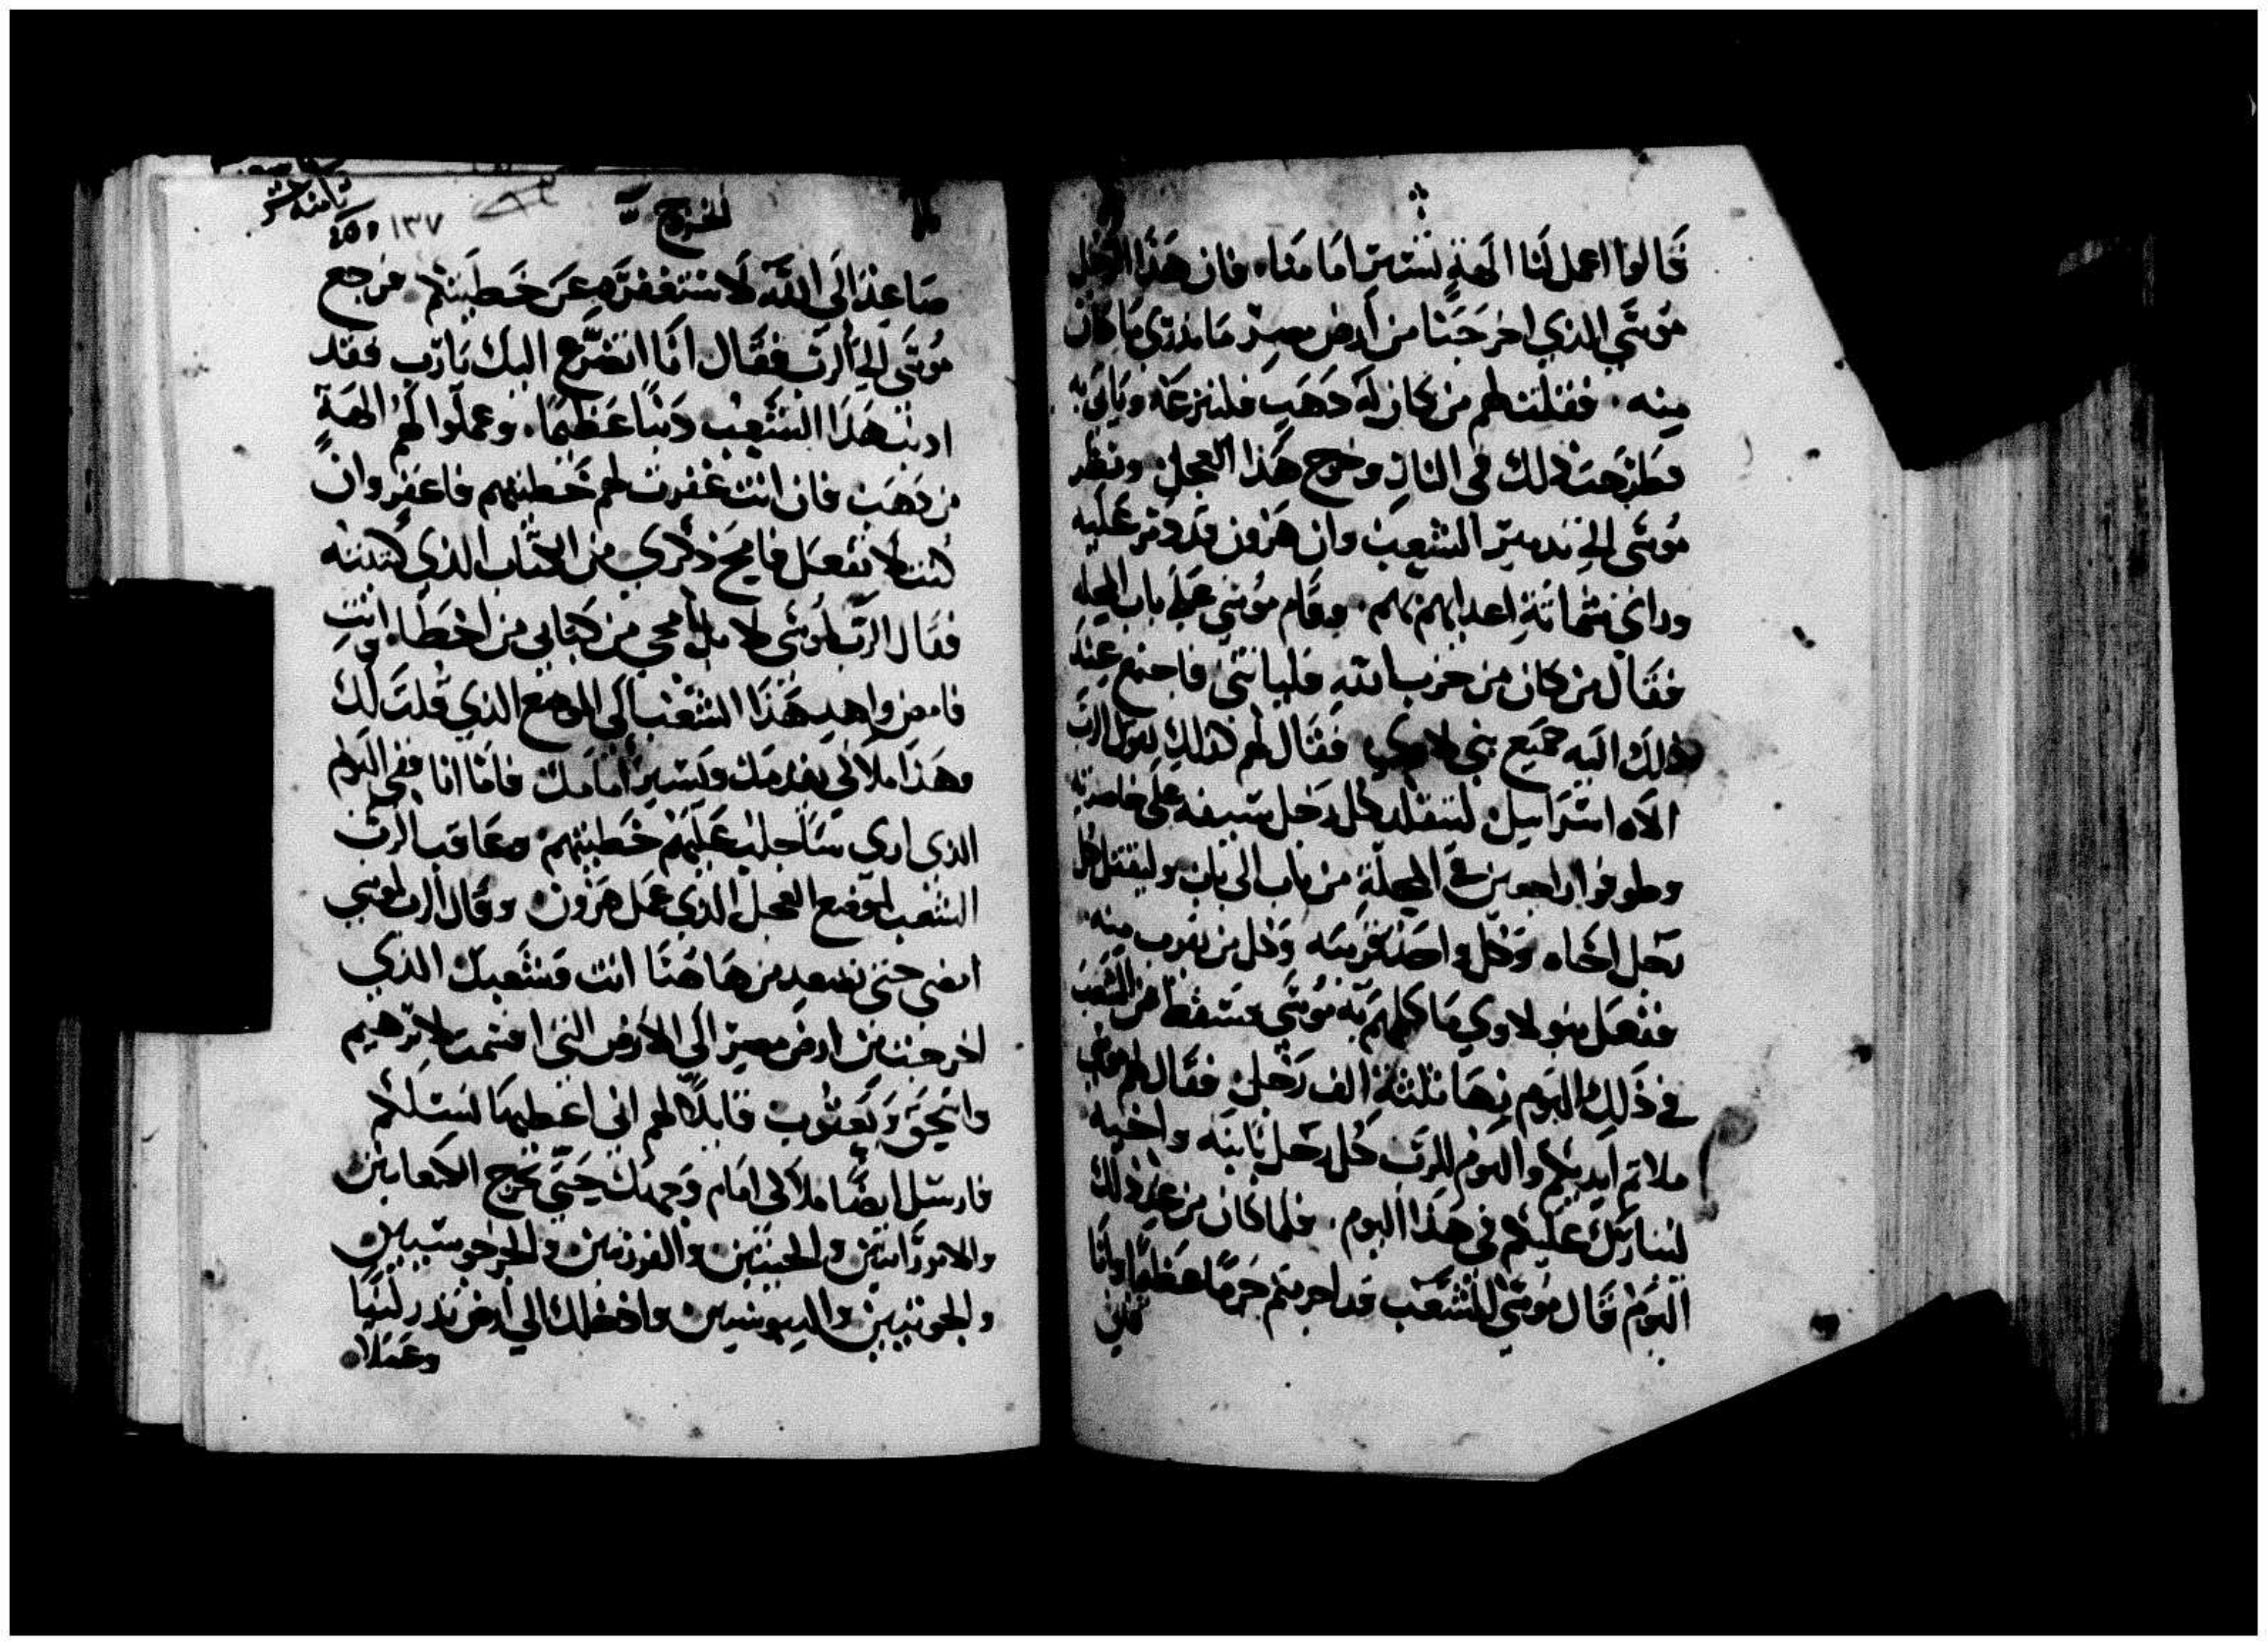 قالوا اعمل لنا الهة تستير امامنا. فان هذا الرجل
موسى الذي اخرجنا من ارض مصر ما ندري ما كان
منه. فقلت لهم من كان له دهب فلينزعه وياتي به
فطرحت ذلك في النار وخرج هذا العجل ونظر
موسى الي الشعب وان هرون قد عليه
شماتة اعدايهم بهم. وقام موسى على باب المحله
فقال من كان من حزب الله فلياتني فاجتمع عند
ذلك اليه جميع بني لاوي فقال لهم كذلك يقول الرب
الاه اسراييل ليتقلد كل رجل سيفه على خاصرته
وطوفوا راجعين في المحلة من باب الى باب وليقتل كل
رجل اخاه وكل واحد قريبه وكل من يقرب منه
ففعل بنو لاوي ما كلمهم به موسى فسقط من الشعب
في ذلك اليوم نحا ثلثة الف رجل فقال لهم موسى
ملاتم ايديكم واليوم للرب كل رجل بابنه واخيه
ليبارك عليكم في هذا اليوم. فلما كان من غد ذلك
اليوم قال موسى للشعب قد اجرمتم جرما عظيما وانا
الخروج
ثامنه عشر
١٣٧
صاعد الى الله لاستغفره عن خطيتكم فرجع
موسى الي الرب فقال انا اتضرع اليك يارب فقد
ادنب هذا الشعب دنبا عظيما. وعملوا لهم الهة
من دهب فان انت غفرت لهم خطيتهم فاغفر وان
كنت لا تفعل فامح ذكري من الكتاب الذي كتبته
فقال الرب لموسى لا بل امحي من كتابي من اخطا. وانت
فامض واهد هذا الشعب الى الموضع الذي قلت لك
وهذا ملاكي يقدمك ويسير امامك فاما انا ففي اليوم
الذي اري ساجلب عليهم خطيتهم وعاقب الرب
الشعب لموضع العجل الذي عمل هرون وقال الرب لموسى
امضي حتى تصعد من هاهنا انت وشعبك الذي
اخرجت من ارض مصر الى الارض التي اقسمت لابرهيم
واسحق ويعقوب قايلا لهم اني اعطيها لنسلكم
فارسل ايضا ملاكي امام وجهك حتى يخرج الكنعانيين
والامورانيين والحيتيين والفرزيين والجرجوسيين
والحويين واليبوسيين وادخلك الي ارض تدر لبنا
وعسلا